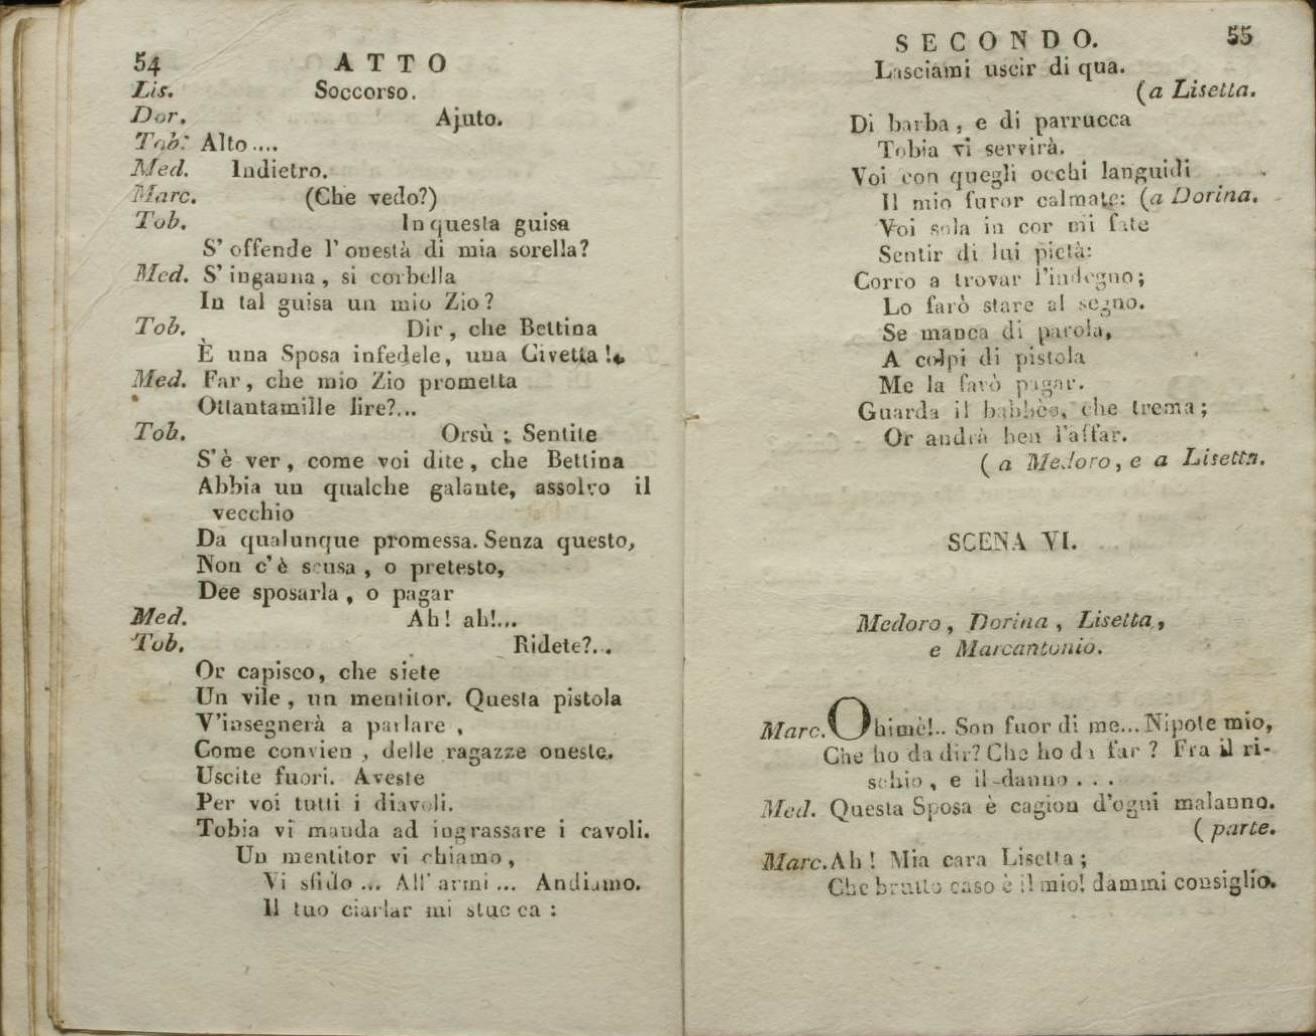 54 ATTO
Lis. Soccorso.
Dor. Ajuto.
Tob. Alto....
Med. Indietro.
Marc. (Che vedo?)
Tob. In questa guisa
S' offende l' onestà di mia sorella?
Med. S' inganna, si corbella
In tal guisa un mio Zio?
Tob. Dir, che Bettina
È una Sposa infedele, una Civetta!.
Med. Far, che mio Zio prometta
Ottantamille lire?...
Tob. Orsù; Sentite
S'è ver, come voi dite, che Bettina
Abbia un qualche galante, assolvo il
vecchio
Da qualunque promessa. Senza questo,
Non c'è scusa, o pretesto,
Dee sposarla, o pagar
Med. Ah! ah!...
Tob. Ridete?...
Or capisco, che siete
Un vile, un mentitor. Questa pistola
V'insegnerà a parlare,
Come convien, delle ragazze oneste.
Uscite fuori. Aveste
Per voi tutti i diavoli.
Tobia vi manda ad ingrassare i cavoli.
Un mentitor vi chiamo,
Vi sfido... All' armi... Andiamo.
Il tuo ciarlar mi stucca:
SECONDO. 55
Lasciami uscir di qua.
(a Lisetta.
Di barba, e di parrucca
Tobia vi servirà.
Voi con quegli occhi languidi
Il mio furor calmate: (a Dorina.
Voi sola in cor mi fate
Sentir di lui pietà:
Corro a trovar l'indegno;
Lo farò stare al segno.
Se manca di parola,
A colpi di pistola
Me la farò pagar.
Guarda il babbèo, che trema;
Or andrà ben l'affar.
(a Medoro, e a Lisetta.
SCENA VI.
Medoro, Dorina, Lisetta,
e Marcantonio.
Marc. Ohimè!.. Son fuor di me... Nipote mio,
Che ho da dir? Che ho da far? Fra il ri-
schio, e il danno...
Med. Questa Sposa è cagion d'ogni malanno.
(parte.
Marc. Ah! Mia cara Lisetta;
Che brutto caso è il mio! dammi consiglio.